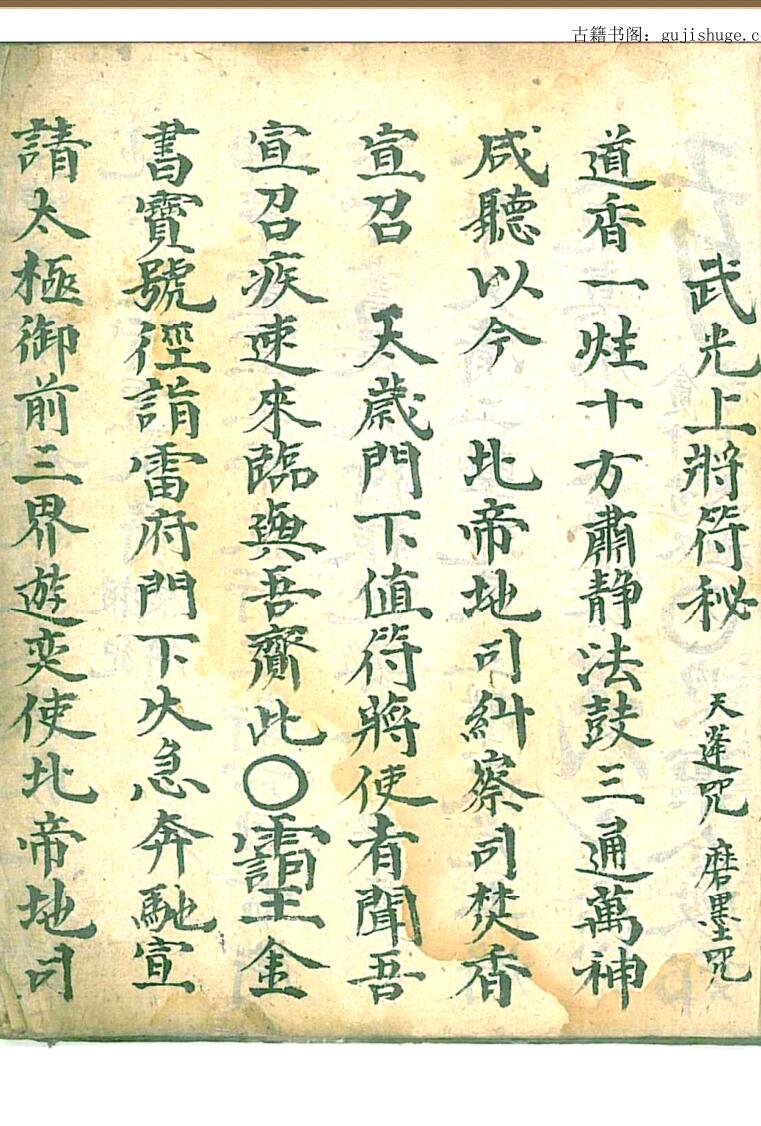 古籍书阁：gujishuge.c
武光上將符秘 天蓬咒 磨墨咒
道香一炷十方肅静法鼓三通萬神
咸聽以今 北帝地司糾察司焚香
宣召 天歲門下值符將使者聞吾
宣召疾速來臨與吾齎此〇 玉金
書寶號徑詣雷府門下火急奔馳宣
請太極御前三界遊奕使北帝地司